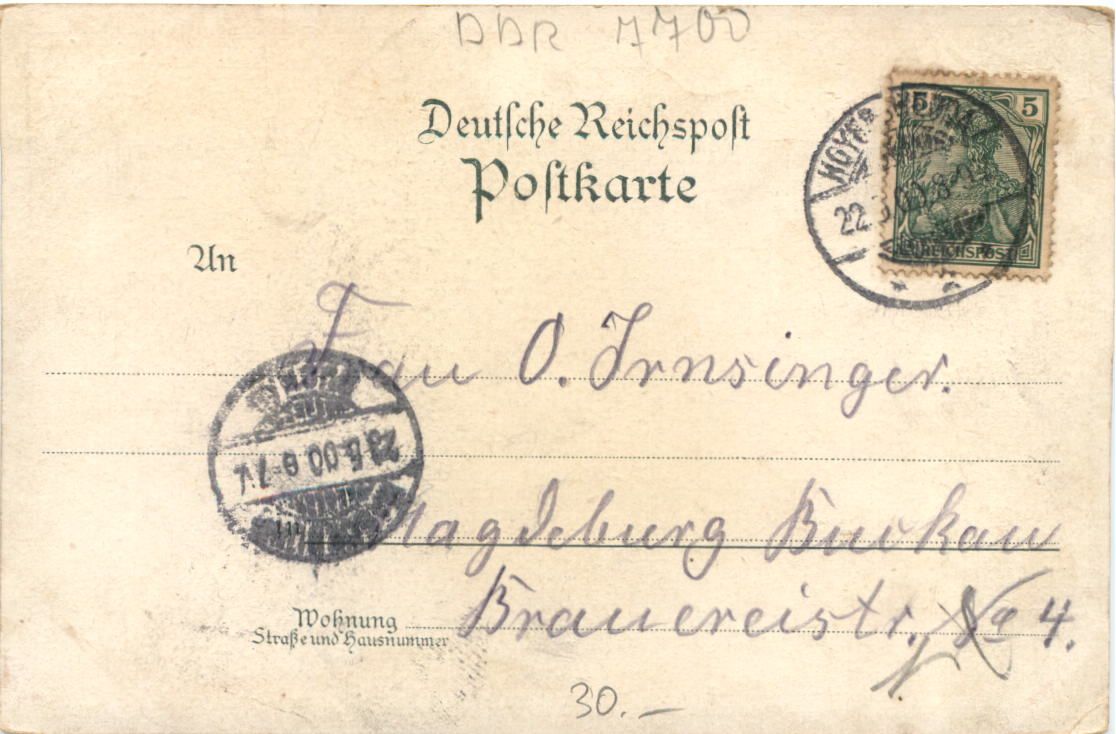 DDR 7700
Deutsche Reichspost
Postkarte
5 5
REICHSPOST
22
An
Frau O. Irnsinger.
23.5.00 6-7V.
Magdeburg Buckau
Wohnung
Straße und Hausnummer
Brauereistr. No 4.
30.—